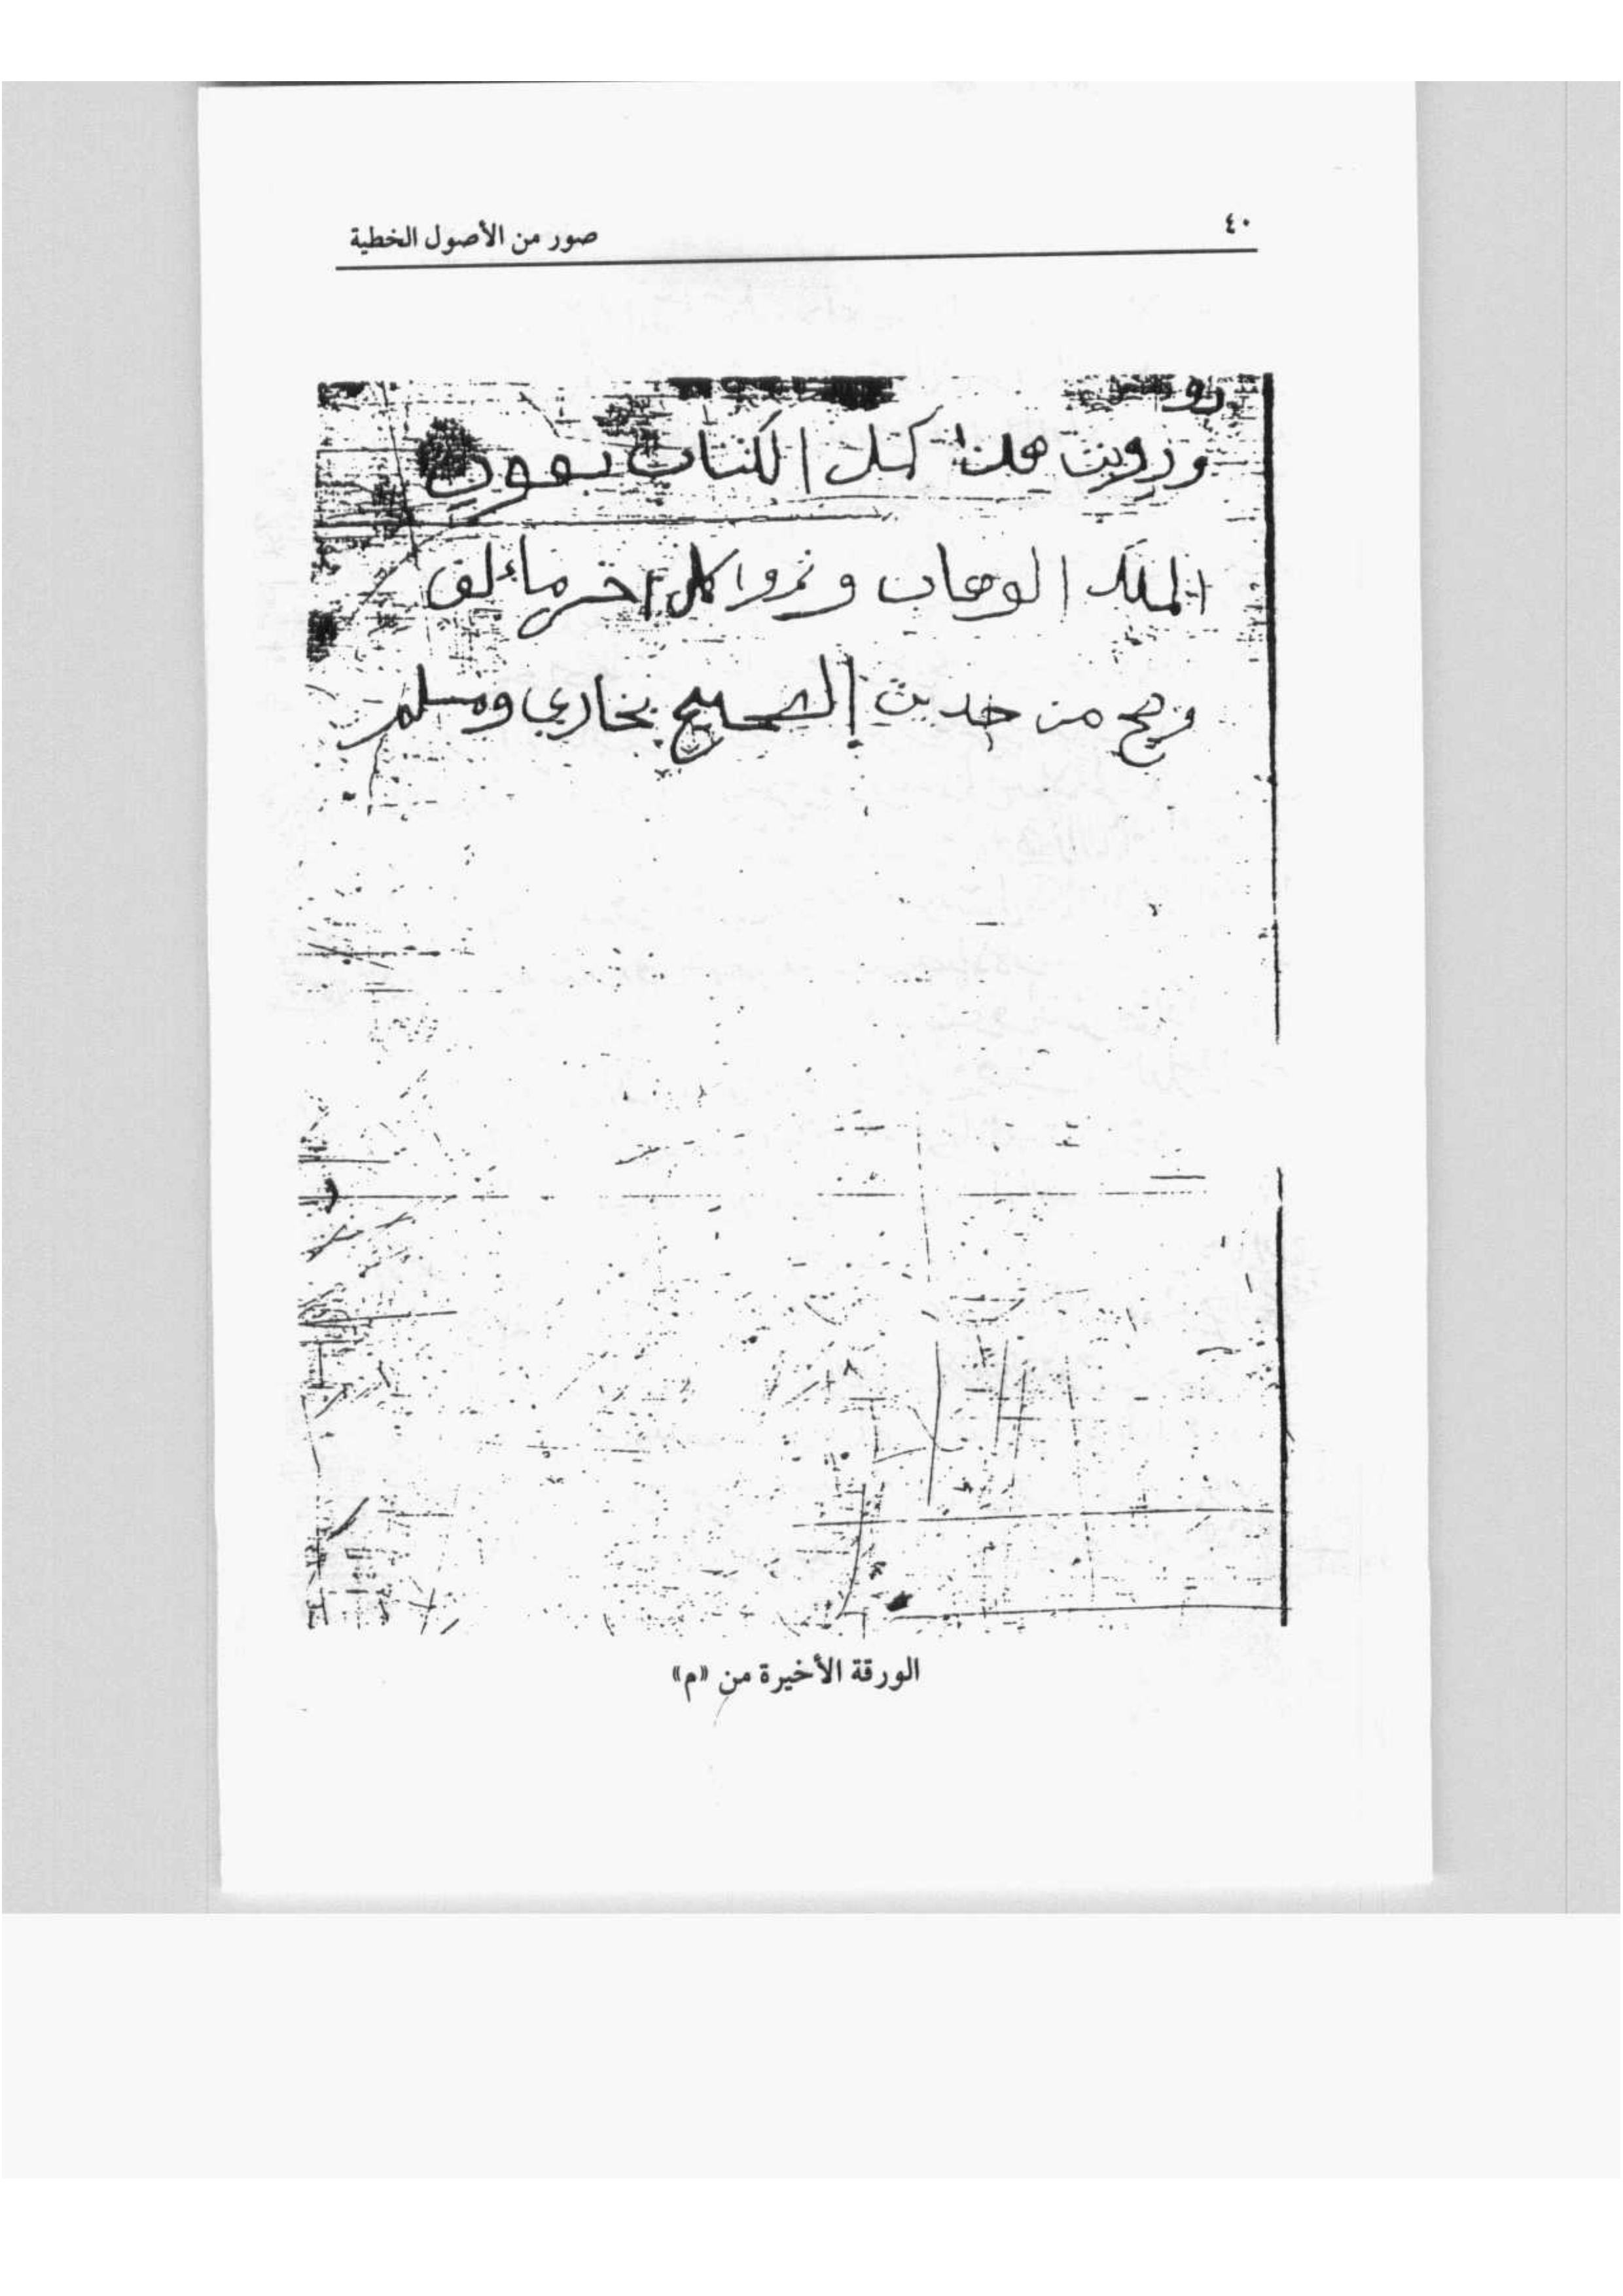 ٤٠
صور من الأصول الخطية
ورويت هذا كمل الكتاب بعون
الملك الوهاب و كل اخر ما
من حديث الصحيح بخاري ومسلم
الورقة الأخيرة من «م»